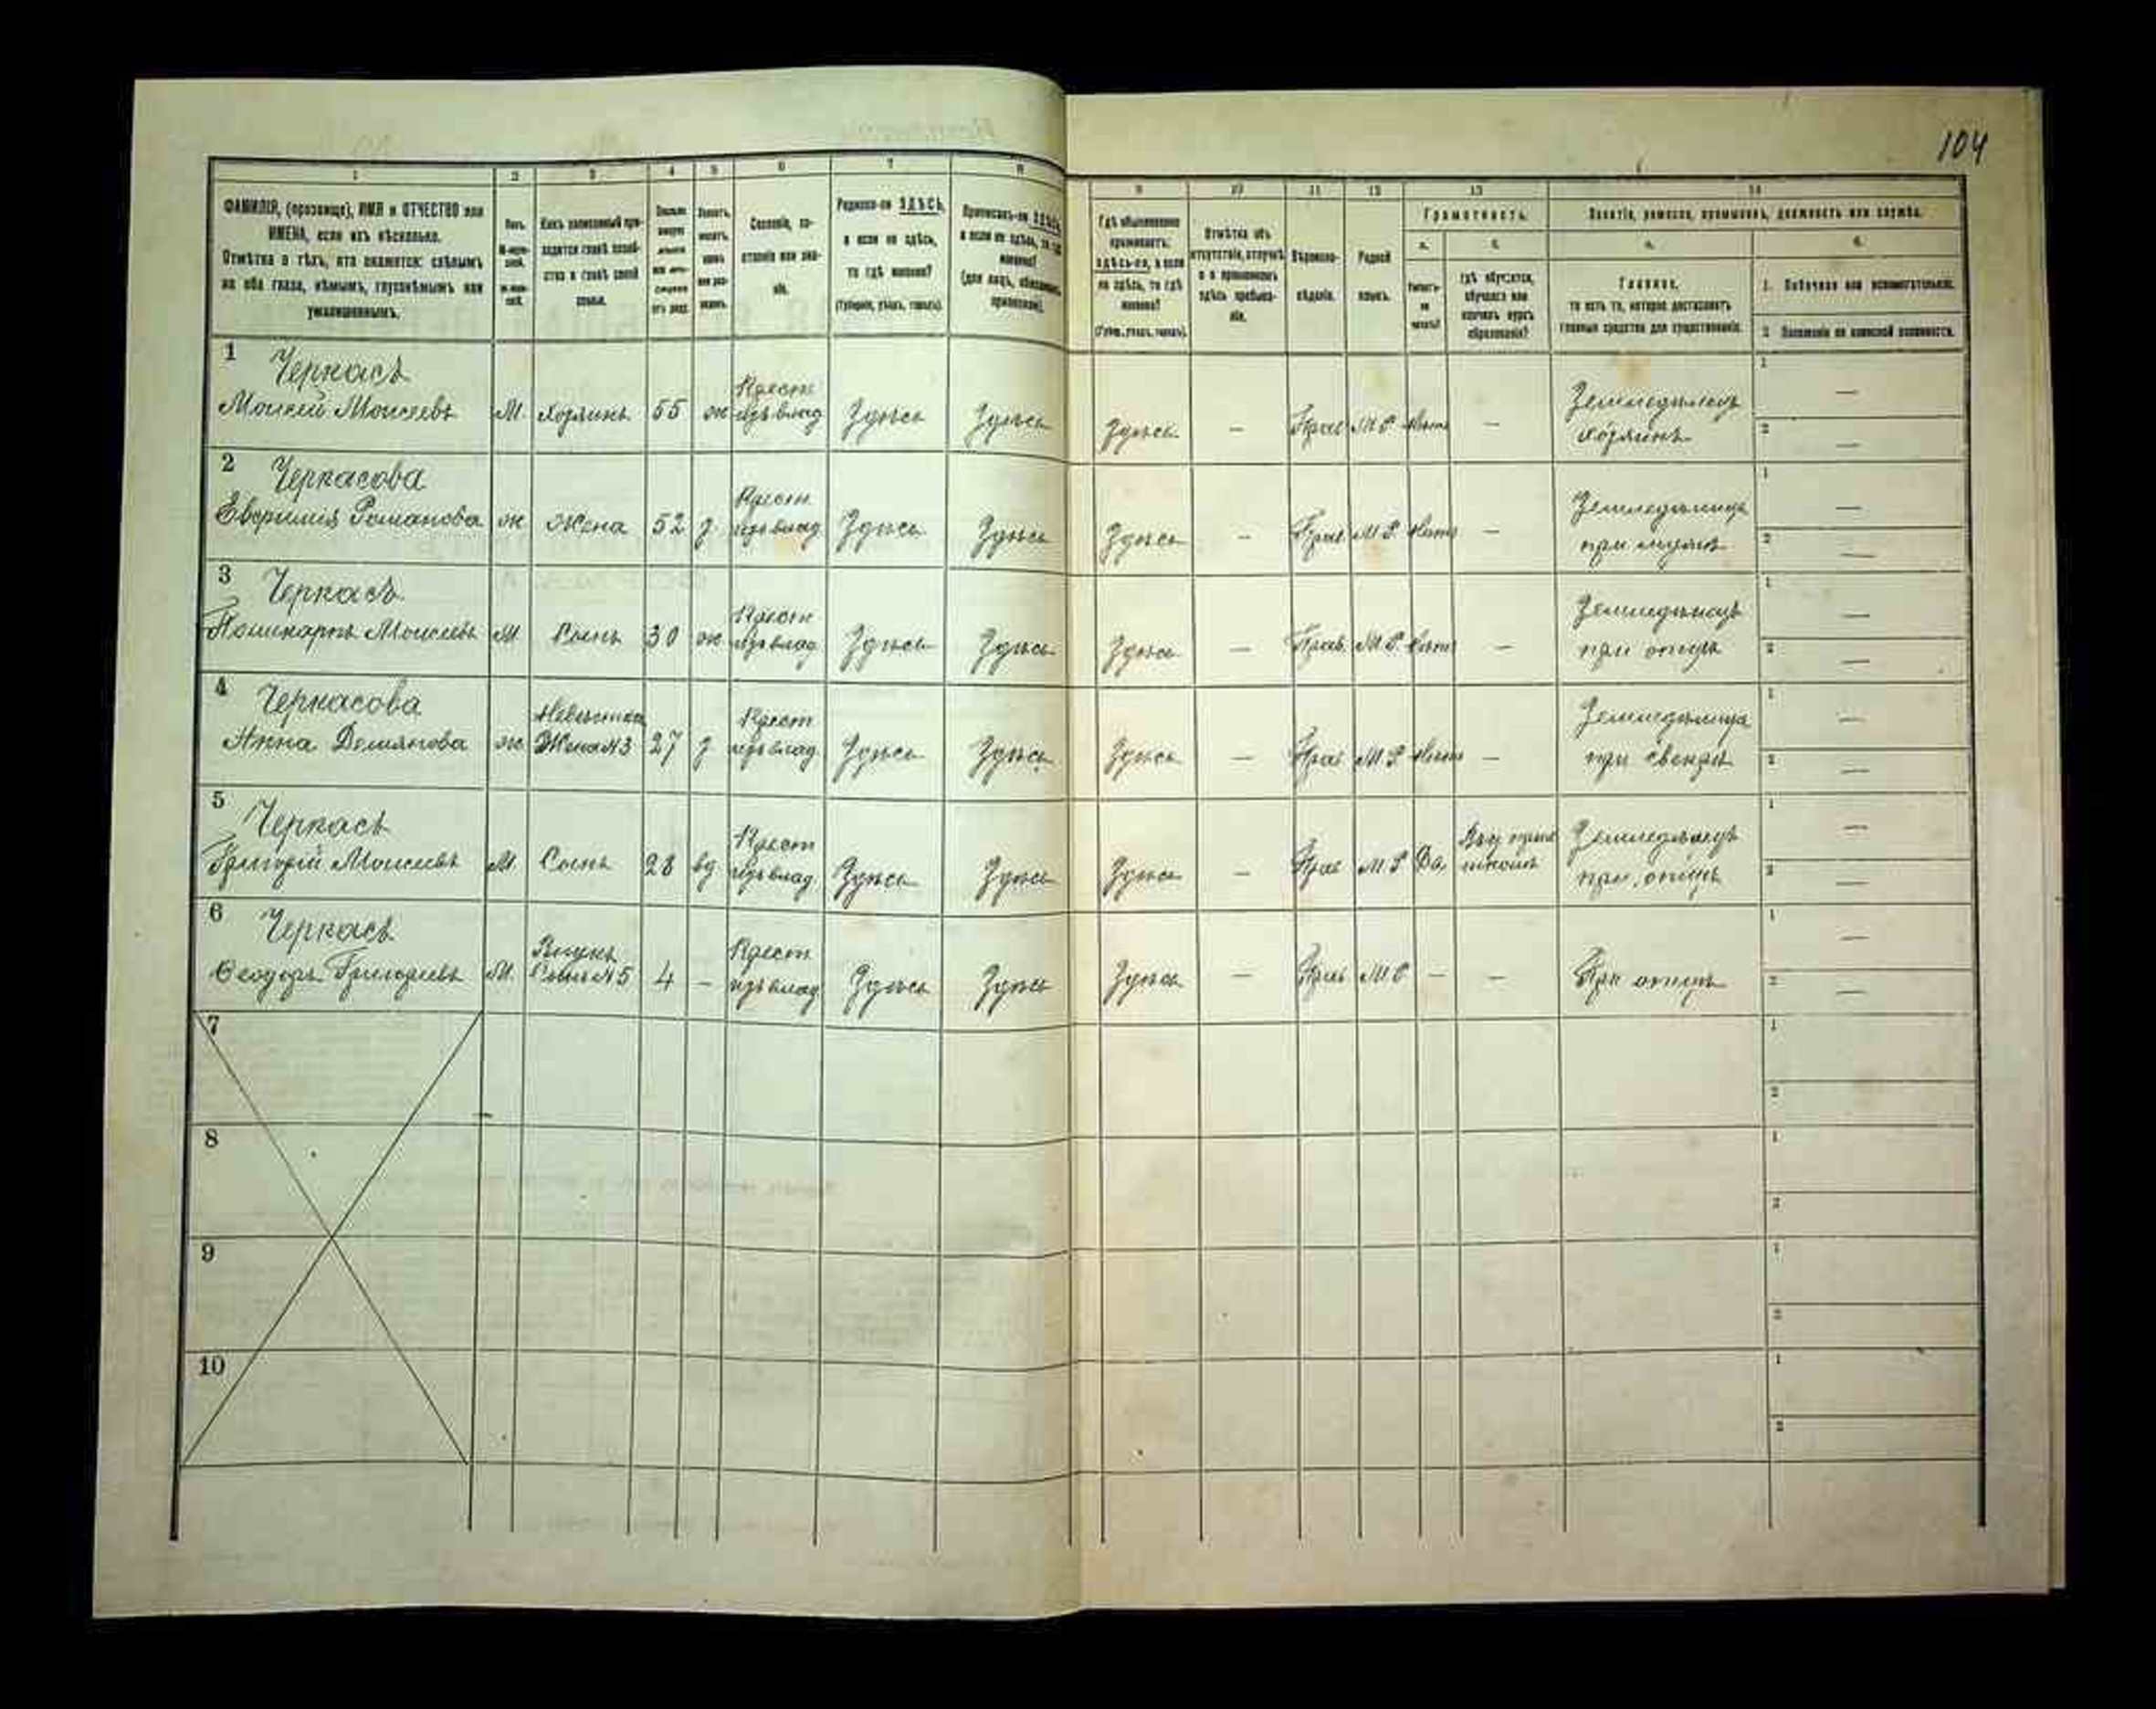 104
1
2
3
4
5
6
7
8
9
10
11
12
13
14
ФАМИЛІЯ, (прозвище), ИМЯ и ОТЧЕСТВО или
ИМЕНА, если ихъ нѣсколько.
Отмѣтка о тѣхъ, кто окажется: слѣпымъ
на оба глаза, нѣмымъ, глухонѣмымъ или
умалишеннымъ.
Полъ.
Какъ записанный при-
ходится главѣ хозяй-
ства и главѣ своей
семьи.
Сословіе, со-
стояніе или зва-
ніе.
Родился-ли ЗДѢСЬ,
а если не здѣсь,
то гдѣ именно?
(Губернія, уѣздъ, городъ).
Приписанъ-ли ЗДѢСЬ,
а если не здѣсь, то гдѣ
именно?
(для лицъ, обязанныхъ
припискою).
Гдѣ обыкновенно
проживаетъ:
здѣсь-ли, а если
не здѣсь, то гдѣ
именно?
(Губер., уѣздъ, городъ).
Отмѣтка объ
отсутствіи, отлучкѣ
и о временномъ
здѣсь пребыва-
ніи.
Вѣроиспо-
вѣданіе.
Родной
языкъ.
Грамотность.
а.
б.
Умѣетъ-
ли
читать?
Гдѣ обучается,
обучался или
кончилъ курсъ
образованія?
Занятіе, ремесло, промыселъ, должность или служба.
а.
б.
Главное,
то есть то, которое доставляетъ
главныя средства для существованія.
1. Побочное или вспомогательное.
2. Положеніе по воинской повинности.
1 Черкасъ
Моисей Моисеевъ М. Хозяинъ 55 ж Крест. изъ влад. Здѣсь Здѣсь Здѣсь — Прав М Р Нѣтъ — Земледѣлецъ хозяинъ 1 — 2 —
2 Черкасова
Евфимія Романова ж Жена 52 з Крест. изъ влад. Здѣсь Здѣсь Здѣсь — Прав М Р Нѣтъ — Земледѣлица при мужѣ 1 — 2 —
3 Черкасъ
Поликарпъ Моисеевъ М Сынъ 30 ж Крест. изъ влад. Здѣсь Здѣсь Здѣсь — Прав. М Р Нѣтъ — Земледѣлецъ при отцѣ 1 — 2 —
4 Черкасова
Анна Демянова ж Невѣстка Жена №3 27 з Крест изъ влад. Здѣсь Здѣсь Здѣсь — Прав М Р Нѣтъ — Земледѣлица при свекрѣ 1 — 2 —
5 Черкасъ
Григорій Моисеевъ М. Сынъ 28 вд Крест изъ влад. Здѣсь Здѣсь Здѣсь — Прав М Р Да, Земледѣлецъ при отцѣ 1 — 2 —
6 Черкасъ
Ѳеодоръ Григорьевъ М. Внукъ Сынъ №5 4 — Крест. изъ влад Здѣсь Здѣсь Здѣсь — Прав М Р — — При отцѣ 1 — 2 —
7 1 2
8 1 2
9 1 2
10 1 2